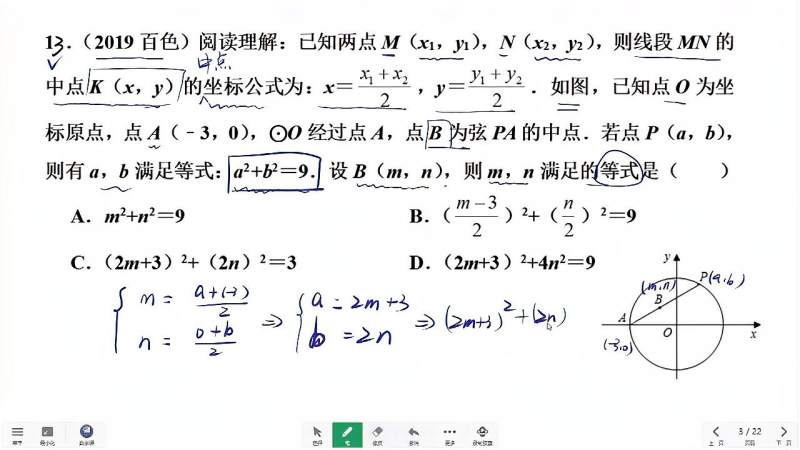 13.（2019 百色）阅读理解：已知两点 M（x₁，y₁），N（x₂，y₂），则线段 MN 的
中点
中点 K（x，y）的坐标公式为：x＝(x₁+x₂)/2，y＝(y₁+y₂)/2．如图，已知点 O 为坐
标原点，点 A（﹣3，0），⊙O 经过点 A，点 B 为弦 PA 的中点．若点 P（a，b），
则有 a，b 满足等式：a²+b²＝9．设 B（m，n），则 m，n 满足的等式是（　　）
A．m²+n²＝9
B．（(m−3)/2）²+（n/2）²＝9
C．（2m+3）²+（2n）²＝3
D．（2m+3）²+4n²＝9
{ m = (a+(-3))/2 ⇒ { a = 2m+3 ⇒ (2m+3)² + (2n)
n = (0+b)/2 b = 2n
y
P(a,b)
(m,n)
B
A
O
x
(-3,0)
最小化
选择
笔
更多
3 / 22
上 页
页码
下 页